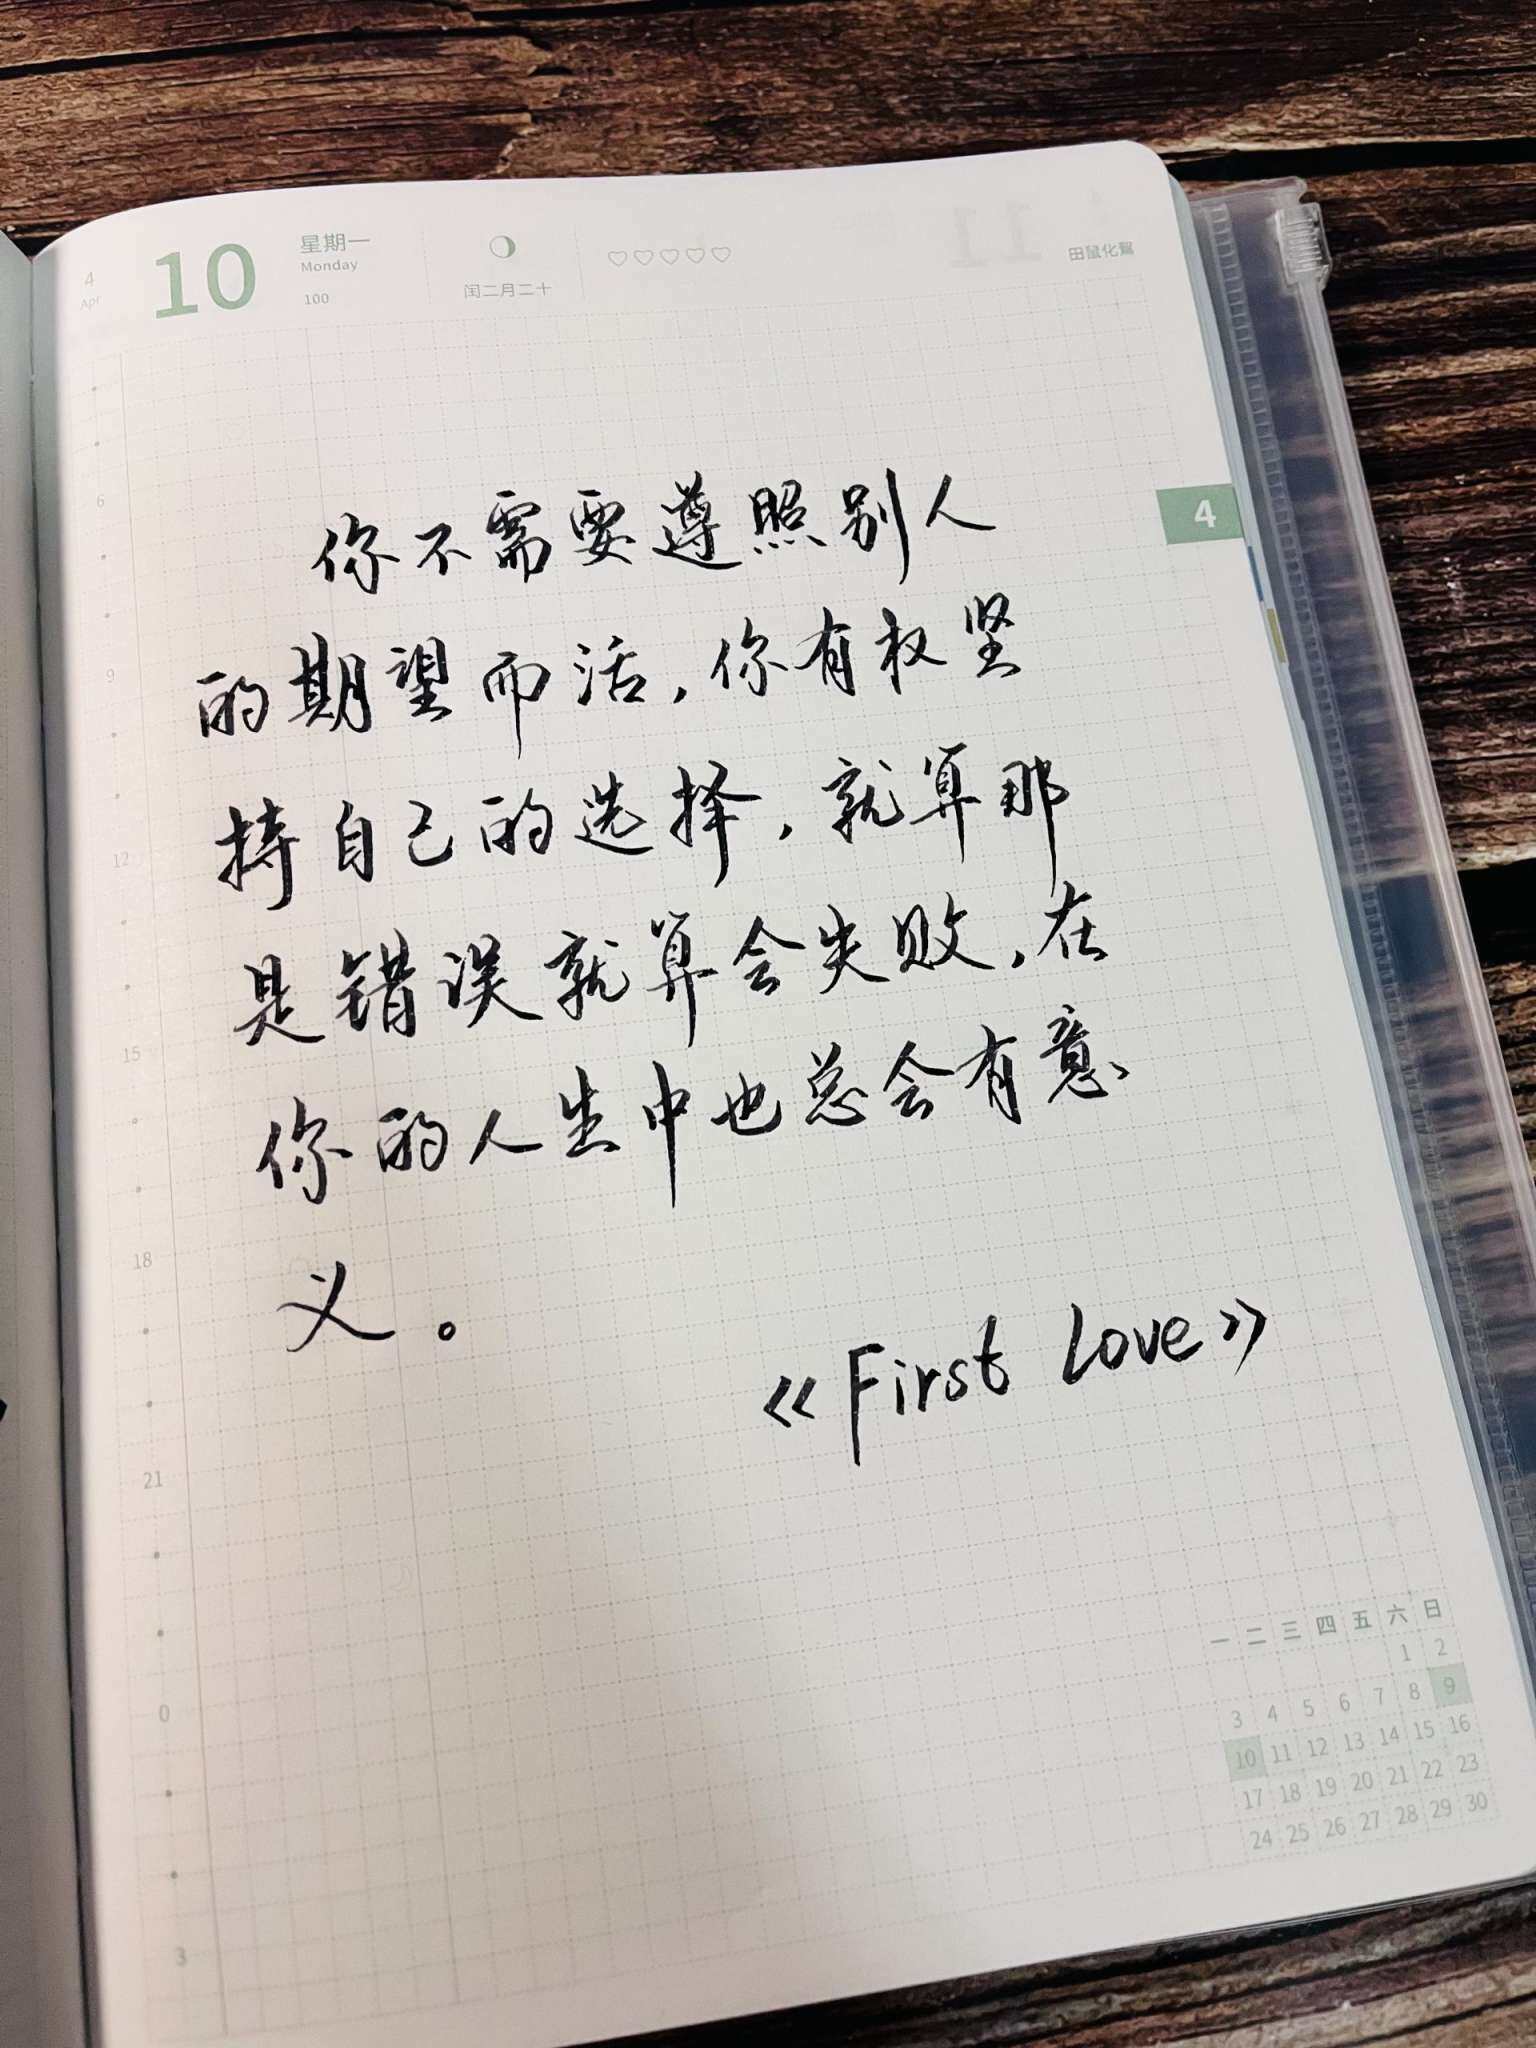 4
Apr
10
星期一
Monday
100
闰二月二十
田鼠化鴽
4
6
9
12
15
18
21
0
3
你不需要遵照别人
的期望而活，你有权坚
持自己的选择，就算那
是错误就算会失败，在
你的人生中也总会有意
义。
《First Love》
一 二 三 四 五 六 日
1 2
3 4 5 6 7 8 9
10 11 12 13 14 15 16
17 18 19 20 21 22 23
24 25 26 27 28 29 30